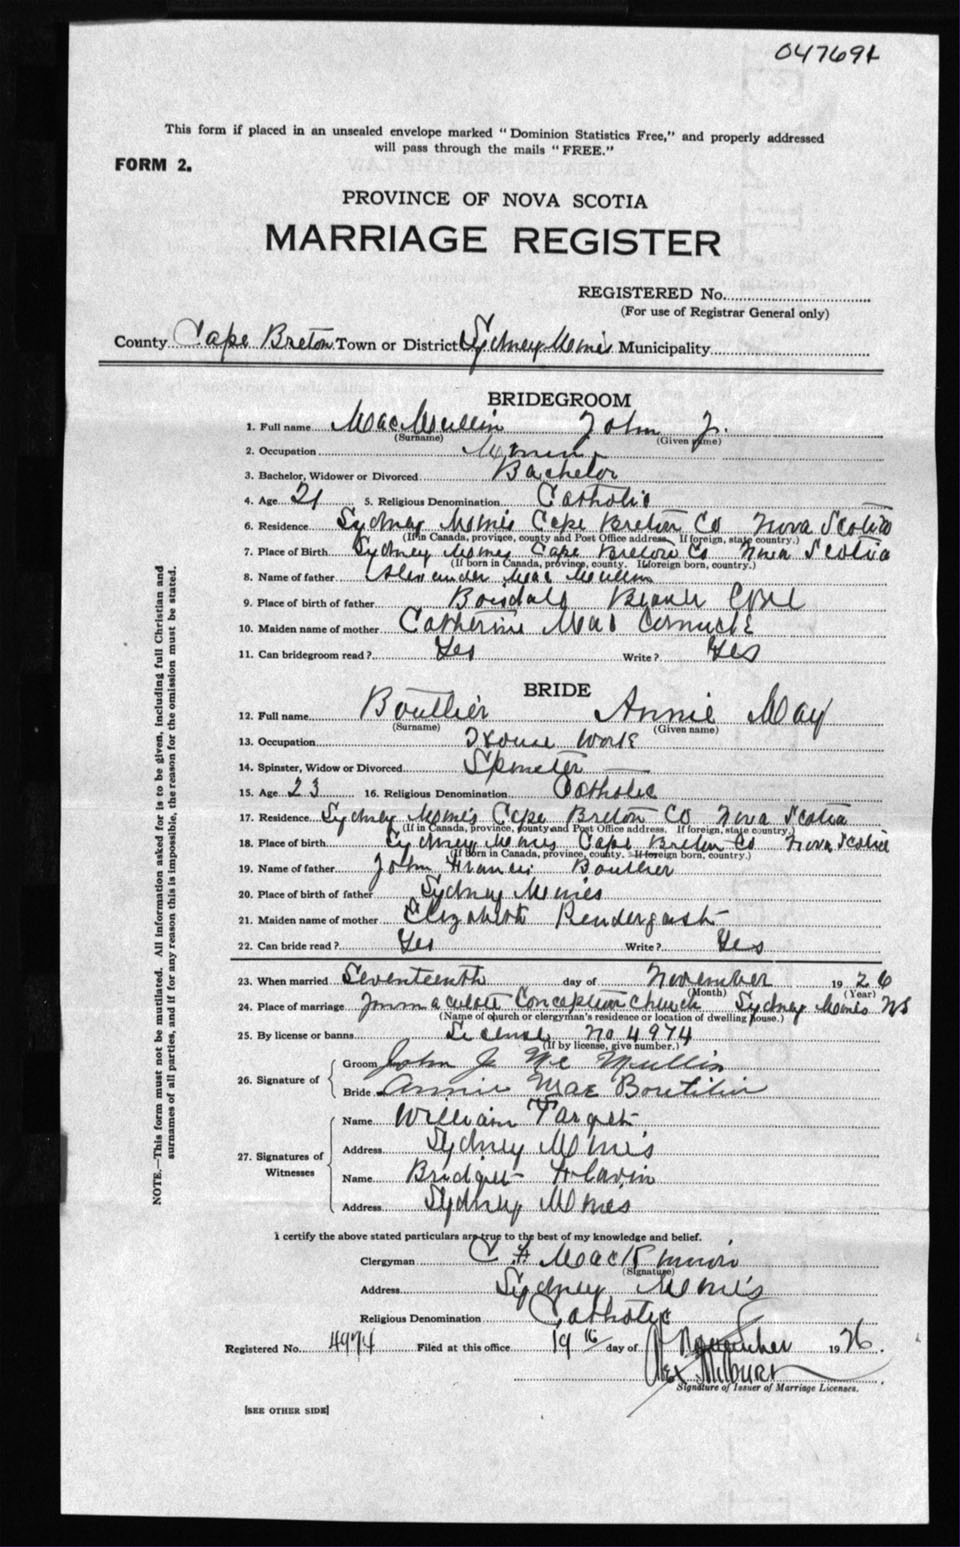 047691
This form if placed in an unsealed envelope marked "Dominion Statistics Free," and properly addressed
will pass through the mails "FREE."
FORM 2.
PROVINCE OF NOVA SCOTIA
MARRIAGE REGISTER
REGISTERED No.
(For use of Registrar General only)
County Cape Breton Town or District Sydney Mines Municipality
BRIDEGROOM
1. Full name MacMullin John J.
(Surname) (Given name)
2. Occupation Miner
3. Bachelor, Widower or Divorced Bachelor
4. Age 21 5. Religious Denomination Catholic
6. Residence Sydney Mines Cape Breton Co Nova Scotia
(If in Canada, province, county and Post Office address. If foreign, state country.)
7. Place of Birth Sydney Mines Cape Breton Co Nova Scotia
(If born in Canada, province, county. If foreign born, country.)
8. Name of father Alexander Mac Mullin
9. Place of birth of father Boisdale
10. Maiden name of mother Catherine Mac
11. Can bridegroom read? Yes Write? Yes
BRIDE
12. Full name Boutlier Annie May
(Surname) (Given name)
13. Occupation House Work
14. Spinster, Widow or Divorced Spinster
15. Age 23 16. Religious Denomination Catholic
17. Residence Sydney Mines Cape Breton Co Nova Scotia
(If in Canada, province, county and Post Office address. If foreign, state country.)
18. Place of birth Sydney Mines Cape Breton Co Nova Scotia
(If born in Canada, province, county. If foreign born, country.)
19. Name of father John Francis Boutlier
20. Place of birth of father Sydney Mines
21. Maiden name of mother Elizabeth Pendergast
22. Can bride read? Yes Write? Yes
23. When married Seventeenth day of November 1926
(Month) (Year)
24. Place of marriage Immaculate Conception Church Sydney Mines NS
(Name of church or clergyman's residence or location of dwelling house.)
25. By license or banns License No 4974
(If by license, give number.)
26. Signature of
Groom John J Mc Mullin
Bride Annie Mae Boutilier
27. Signatures of Witnesses
Name William Target
Address Sydney Mines
Name Bridget Flavin
Address Sydney Mines
I certify the above stated particulars are true to the best of my knowledge and belief.
Clergyman C F MacKinnon
(Signature)
Address Sydney Mines
Religious Denomination Catholic
Registered No. 4974 Filed at this office 19 day of November 1926.
Alex Milburn
Signature of Issuer of Marriage Licenses.
[SEE OTHER SIDE]
NOTE.—This form must not be mutilated. All information asked for is to be given, including full Christian and
surnames of all parties, and if for any reason this is impossible, the reason for the omission must be stated.